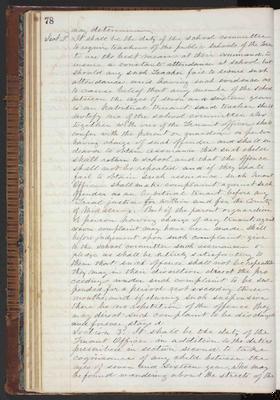 78
may determine.
Sect. 2. It shall be the duty of the school committee
to require teachers of the public schools of the Town
to use the best means at their command to
secure a constant attendance at school, but
should any such Teacher fail to secure such
attendance and having such evidence as
to cause belief that any member of the school
between the ages of seven and sixteen years
is an habitual truant said teacher shall
notify one of the school committee who
together with one of the Truant officers shall
confer with the parent or guardian or person
having charge of such offender and shall en-
deavor to obtain assurance that such child
shall return to school and that the offence
shall not be repeated and if they shall
fail to obtain such assurance such Truant
Officer shall make complaint against such
offender as an habitual truant before any
Trial Justice for within and for the County
of But if the parent or guardian
or person having charge of any truant against
whom complaint may have been made shall
before judgement upon such complaint give
to the school committee such assurance or
pledge as shall be deemed satisfactory to
them that such offence shall not be repeated
they may in their discretion direct the pro-
ceedings under such complaint to be sus-
pended for a period not exceeding three
months, and if during such suspension
there be no repetition of the offence they
may direct such complaint to be discharged
and forever stayed.
Section 3. It shall be the duty of the
Truant Officer in addition to the duties
prescribed in section second to take
cognizance of any child between the
ages of seven and sixteen years, who may
be found wandering about the streets of the